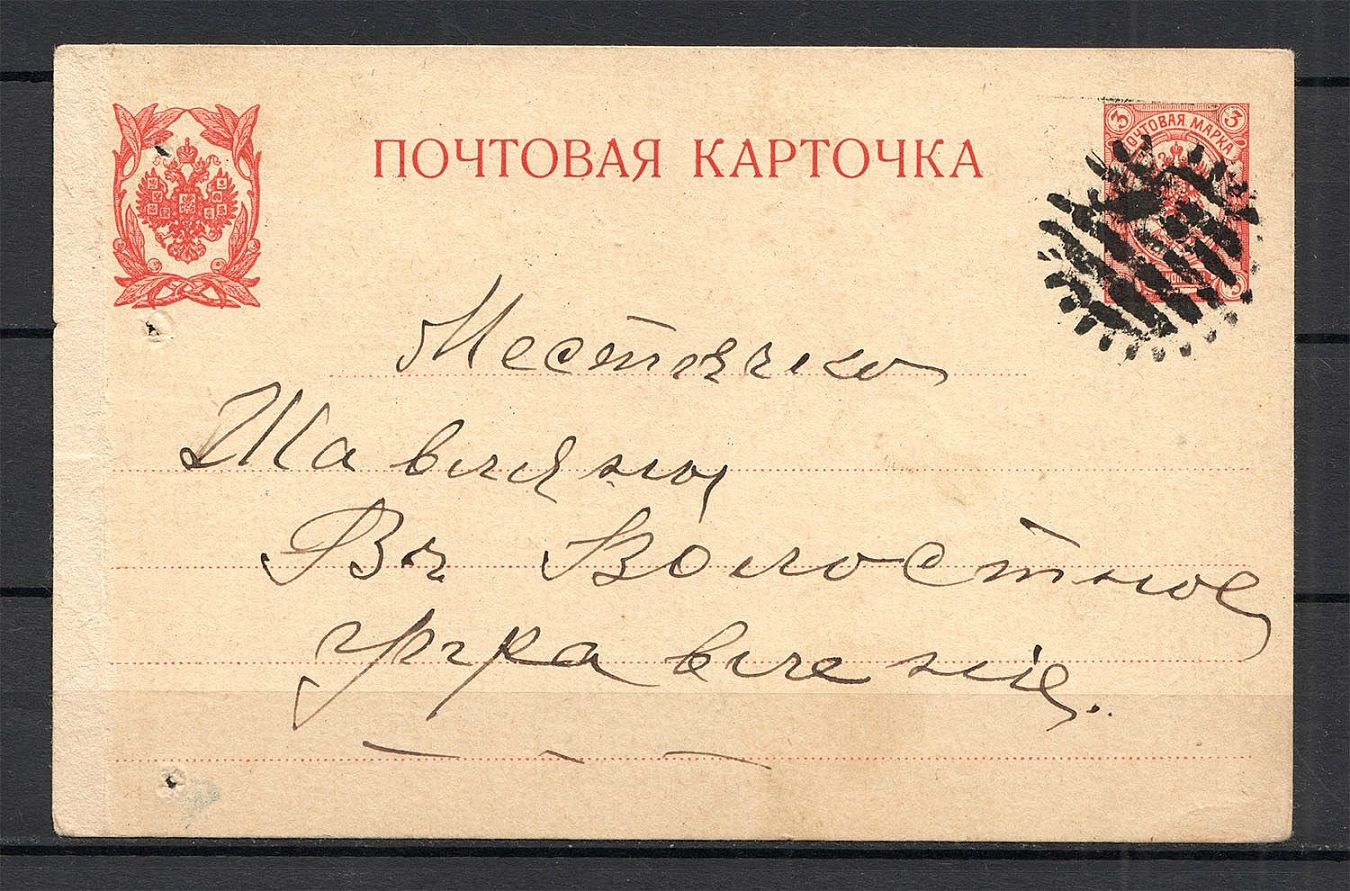 ПОЧТОВАЯ КАРТОЧКА
3 ПОЧТОВАЯ МАРКА 3
Местѣчко
Шавляны
Въ Волостное
Управленіе.